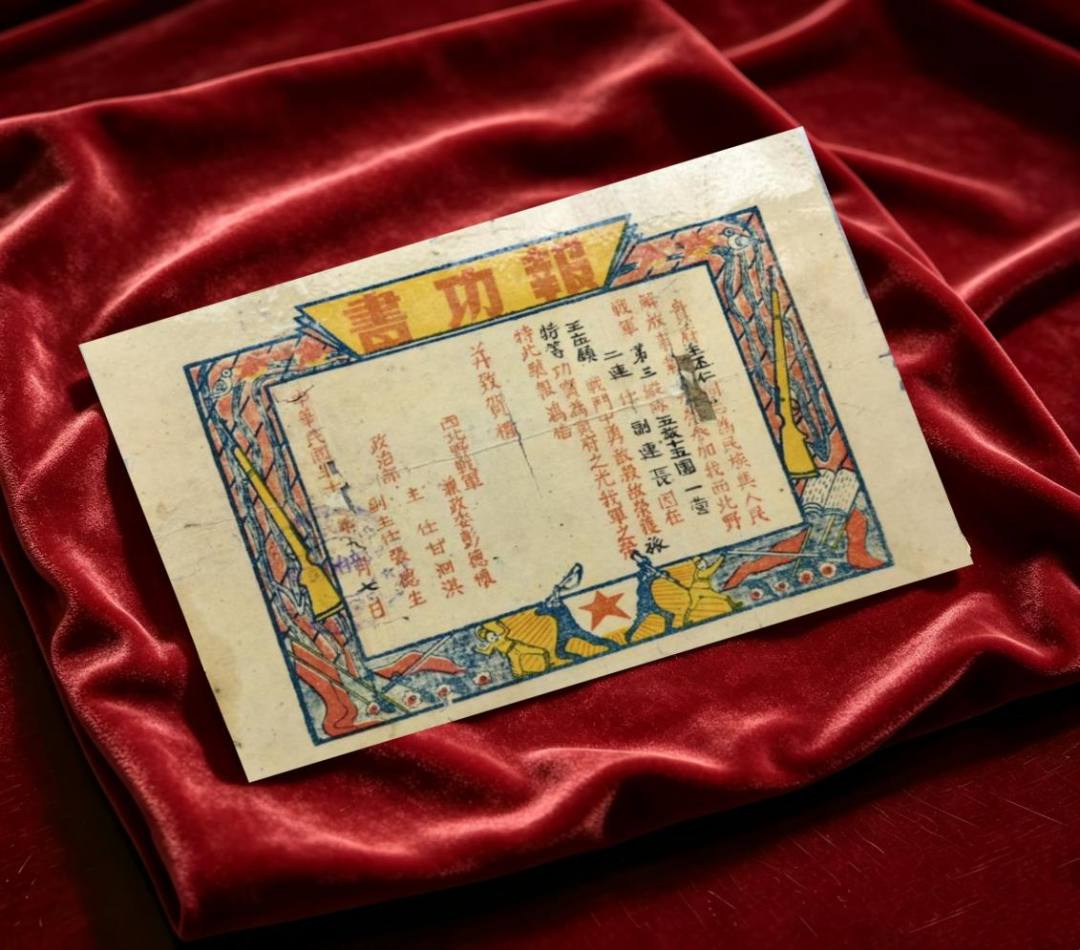 報功書
王丕仁 同志為民族與人民
解放事業光荣参加我西北野
戰軍 第三縱隊 十五團 一营
二連 任 副連長 因在
戰鬥中勇敢殺敵荣獲
特等 功實為貴府之光我軍之荣
特此榮報
并致賀禧
西北野戰軍 兼政委彭德懷
政治部 主任甘泗淇
副主任張德生
中華民國 年 月七日